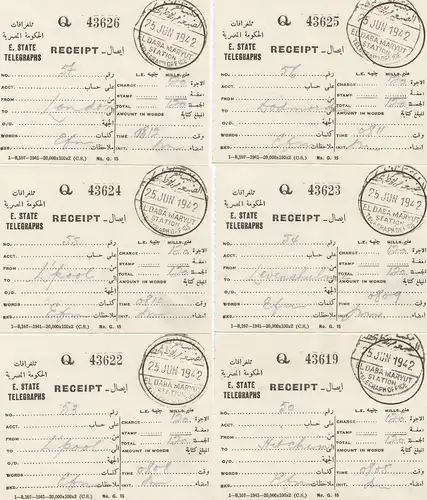 Q 43626
25 JUN 1942
EL DABA MARYUT
STATION
TELEGRAPH OFFICE
تلغرافات
الحكومة المصرية
E. STATE
TELEGRAPHS
RECEIPT - إيصال
NO. 57 رقم
ACCT. على حساب
FROM من
TO London إلى
O/D.
WORDS Efm كلمات
ملاحظات
L.E. جنيه MILLS. مليم
CHARGE الاجرة
STAMP دمغة
TOTAL الجملة
AMOUNT IN WORDS المبلغ كتابة
TIME 0812 وقت
INIT.
1—8,107—1941—20,000x100x2 (C.S.) No. G. 15
Q 43625
25 JUN 1942
EL DABA MARYUT
STATION
TELEGRAPH OFFICE
تلغرافات
الحكومة المصرية
E. STATE
TELEGRAPHS
RECEIPT - إيصال
NO. 56 رقم
ACCT. على حساب
FROM من
TO إلى
O/D.
WORDS Efm كلمات
ملاحظات
L.E. جنيه MILLS. مليم
CHARGE الاجرة
STAMP دمغة
TOTAL الجملة
AMOUNT IN WORDS المبلغ كتابة
TIME 0811 وقت
INIT.
1—8,107—1941—20,000x100x2 (C.S.) No. G. 15
Q 43624
25 JUN 1942
EL DABA MARYUT
STATION
TELEGRAPH OFFICE
تلغرافات
الحكومة المصرية
E. STATE
TELEGRAPHS
RECEIPT - إيصال
NO. 55 رقم
ACCT. على حساب
FROM من
TO L'pool إلى
O/D.
WORDS Efm كلمات
ملاحظات
L.E. جنيه MILLS. مليم
CHARGE الاجرة
STAMP دمغة
TOTAL الجملة
AMOUNT IN WORDS المبلغ كتابة
TIME 0810 وقت
INIT.
1—8,107—1941—20,000x100x2 (C.S.) No. G. 15
Q 43623
25 JUN 1942
EL DABA MARYUT
STATION
TELEGRAPH OFFICE
تلغرافات
الحكومة المصرية
E. STATE
TELEGRAPHS
RECEIPT - إيصال
NO. 54 رقم
ACCT. على حساب
FROM من
TO Levenshulme إلى
O/D.
WORDS Efm كلمات
ملاحظات
L.E. جنيه MILLS. مليم
CHARGE الاجرة
STAMP دمغة
TOTAL الجملة
AMOUNT IN WORDS المبلغ كتابة
TIME 0809 وقت
INIT.
1—8,107—1941—20,000x100x2 (C.S.) No. G. 15
Q 43622
25 JUN 1942
EL DABA MARYUT
STATION
TELEGRAPH OFFICE
تلغرافات
الحكومة المصرية
E. STATE
TELEGRAPHS
RECEIPT - إيصال
NO. 53 رقم
ACCT. على حساب
FROM من
TO L'pool إلى
O/D.
WORDS Efm كلمات
ملاحظات
L.E. جنيه MILLS. مليم
CHARGE الاجرة
STAMP دمغة
TOTAL الجملة
AMOUNT IN WORDS المبلغ كتابة
TIME 0808 وقت
INIT.
1—8,107—1941—20,000x100x2 (C.S.) No. G. 15
Q 43619
25 JUN 1942
EL DABA MARYUT
STATION
TELEGRAPH OFFICE
تلغرافات
الحكومة المصرية
E. STATE
TELEGRAPHS
RECEIPT - إيصال
NO. 50 رقم
ACCT. على حساب
FROM من
TO Hitchin إلى
O/D.
WORDS Efm كلمات
ملاحظات
L.E. جنيه MILLS. مليم
CHARGE الاجرة
STAMP دمغة
TOTAL الجملة
AMOUNT IN WORDS المبلغ كتابة
TIME 0805 وقت
INIT.
1—8,107—1941—20,000x100x2 (C.S.) No. G. 15